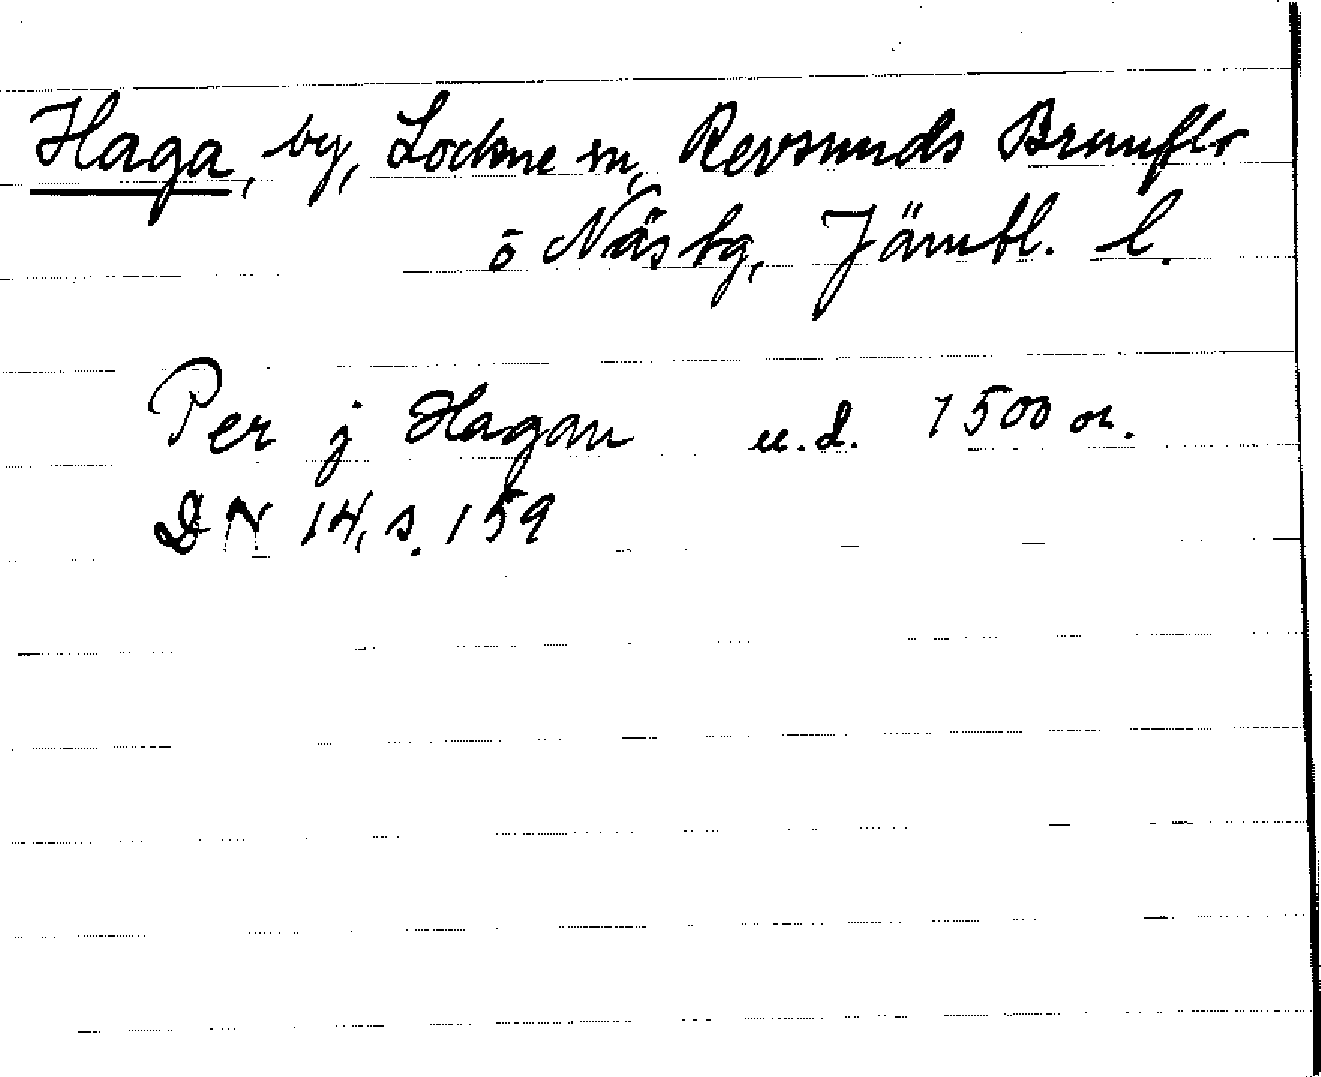 Haga, by, Lockne sn, Revsunds Brunflo
o Näs tg, Jämtl. l.
Per j Hagan u.d. 1500 or.
DN 14, s. 159